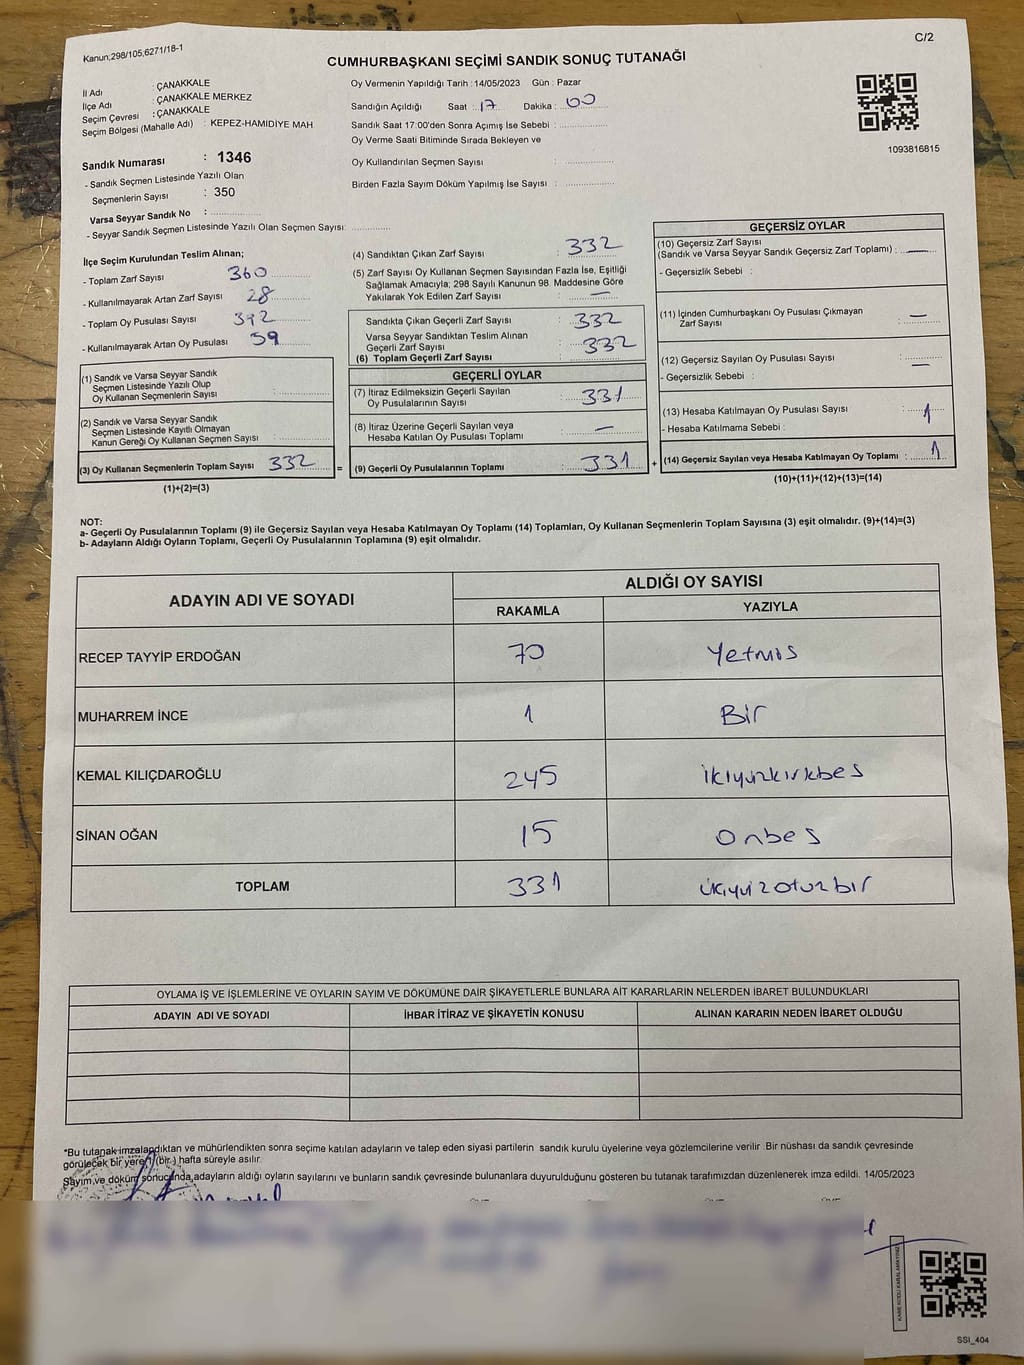 Kanun;298/105,6271/18-1
C/2
CUMHURBAŞKANI SEÇİMİ SANDIK SONUÇ TUTANAĞI
İl Adı : ÇANAKKALE
İlçe Adı : ÇANAKKALE MERKEZ
Seçim Çevresi : ÇANAKKALE
Seçim Bölgesi (Mahalle Adı) : KEPEZ-HAMİDİYE MAH
Sandık Numarası : 1346
- Sandık Seçmen Listesinde Yazılı Olan
Seçmenlerin Sayısı : 350
Varsa Seyyar Sandık No :
- Seyyar Sandık Seçmen Listesinde Yazılı Olan Seçmen Sayısı:
Oy Vermenin Yapıldığı Tarih : 14/05/2023 Gün : Pazar
Sandığın Açıldığı Saat : 17 Dakika : 00
Sandık Saat 17:00'den Sonra Açımış İse Sebebi :
Oy Verme Saati Bitiminde Sırada Bekleyen ve
Oy Kullandırılan Seçmen Sayısı :
Birden Fazla Sayım Döküm Yapılmış İse Sayısı :
1093816815
İlçe Seçim Kurulundan Teslim Alınan;
- Toplam Zarf Sayısı 360
- Kullanılmayarak Artan Zarf Sayısı 28
- Toplam Oy Pusulası Sayısı 392
- Kullanılmayarak Artan Oy Pusulası 59
(1) Sandık ve Varsa Seyyar Sandık
Seçmen Listesinde Yazılı Olup
Oy Kullanan Seçmenlerin Sayısı :
(2) Sandık ve Varsa Seyyar Sandık
Seçmen Listesinde Kayıtlı Olmayan
Kanun Gereği Oy Kullanan Seçmen Sayısı :
(3) Oy Kullanan Seçmenlerin Toplam Sayısı 332 =
(1)+(2)=(3)
(4) Sandıktan Çıkan Zarf Sayısı : 332
(5) Zarf Sayısı Oy Kullanan Seçmen Sayısından Fazla İse, Eşitliği
Sağlamak Amacıyla; 298 Sayılı Kanunun 98. Maddesine Göre
Yakılarak Yok Edilen Zarf Sayısı : —
Sandıkta Çıkan Geçerli Zarf Sayısı : 332
Varsa Seyyar Sandıktan Teslim Alınan
Geçerli Zarf Sayısı : 332
(6) Toplam Geçerli Zarf Sayısı
GEÇERLİ OYLAR
(7) İtiraz Edilmeksizin Geçerli Sayılan
Oy Pusulalarının Sayısı : 331
(8) İtiraz Üzerine Geçerli Sayılan veya
Hesaba Katılan Oy Pusulası Toplamı : —
(9) Geçerli Oy Pusulalarının Toplamı : 331 +
GEÇERSİZ OYLAR
(10) Geçersiz Zarf Sayısı
(Sandık ve Varsa Seyyar Sandık Geçersiz Zarf Toplamı) : —
- Geçersizlik Sebebi :
(11) İçinden Cumhurbaşkanı Oy Pusulası Çıkmayan
Zarf Sayısı : —
(12) Geçersiz Sayılan Oy Pusulası Sayısı : —
- Geçersizlik Sebebi :
(13) Hesaba Katılmayan Oy Pusulası Sayısı : 1
- Hesaba Katılmama Sebebi :
(14) Geçersiz Sayılan veya Hesaba Katılmayan Oy Toplamı : 1
(10)+(11)+(12)+(13)=(14)
NOT:
a- Geçerli Oy Pusulalarının Toplamı (9) ile Geçersiz Sayılan veya Hesaba Katılmayan Oy Toplamı (14) Toplamları, Oy Kullanan Seçmenlerin Toplam Sayısına (3) eşit olmalıdır. (9)+(14)=(3)
b- Adayların Aldığı Oyların Toplamı, Geçerli Oy Pusulalarının Toplamına (9) eşit olmalıdır.
ADAYIN ADI VE SOYADI
ALDIĞI OY SAYISI
RAKAMLA YAZIYLA
RECEP TAYYİP ERDOĞAN 70 Yetmis
MUHARREM İNCE 1 Bir
KEMAL KILIÇDAROĞLU 245 ikiyuzkırkbes
SİNAN OĞAN 15 onbes
TOPLAM 331 üçyüzotuzbir
OYLAMA İŞ VE İŞLEMLERİNE VE OYLARIN SAYIM VE DÖKÜMÜNE DAİR ŞİKAYETLERLE BUNLARA AİT KARARLARIN NELERDEN İBARET BULUNDUKLARI
ADAYIN ADI VE SOYADI İHBAR İTİRAZ VE ŞİKAYETİN KONUSU ALINAN KARARIN NEDEN İBARET OLDUĞU
*Bu tutanak imzalandıktan ve mühürlendikten sonra seçime katılan adayların ve talep eden siyasi partilerin sandık kurulu üyelerine veya gözlemcilerine verilir. Bir nüshası da sandık çevresinde
görülecek bir yere (bir ) hafta süreyle asılır.
Sayım ve döküm sonucunda,adayların aldığı oyların sayılarını ve bunların sandık çevresinde bulunanlara duyurulduğunu gösteren bu tutanak tarafımızdan düzenlenerek imza edildi. 14/05/2023
KARE KODU KARALAMAYINIZ
SSI_404